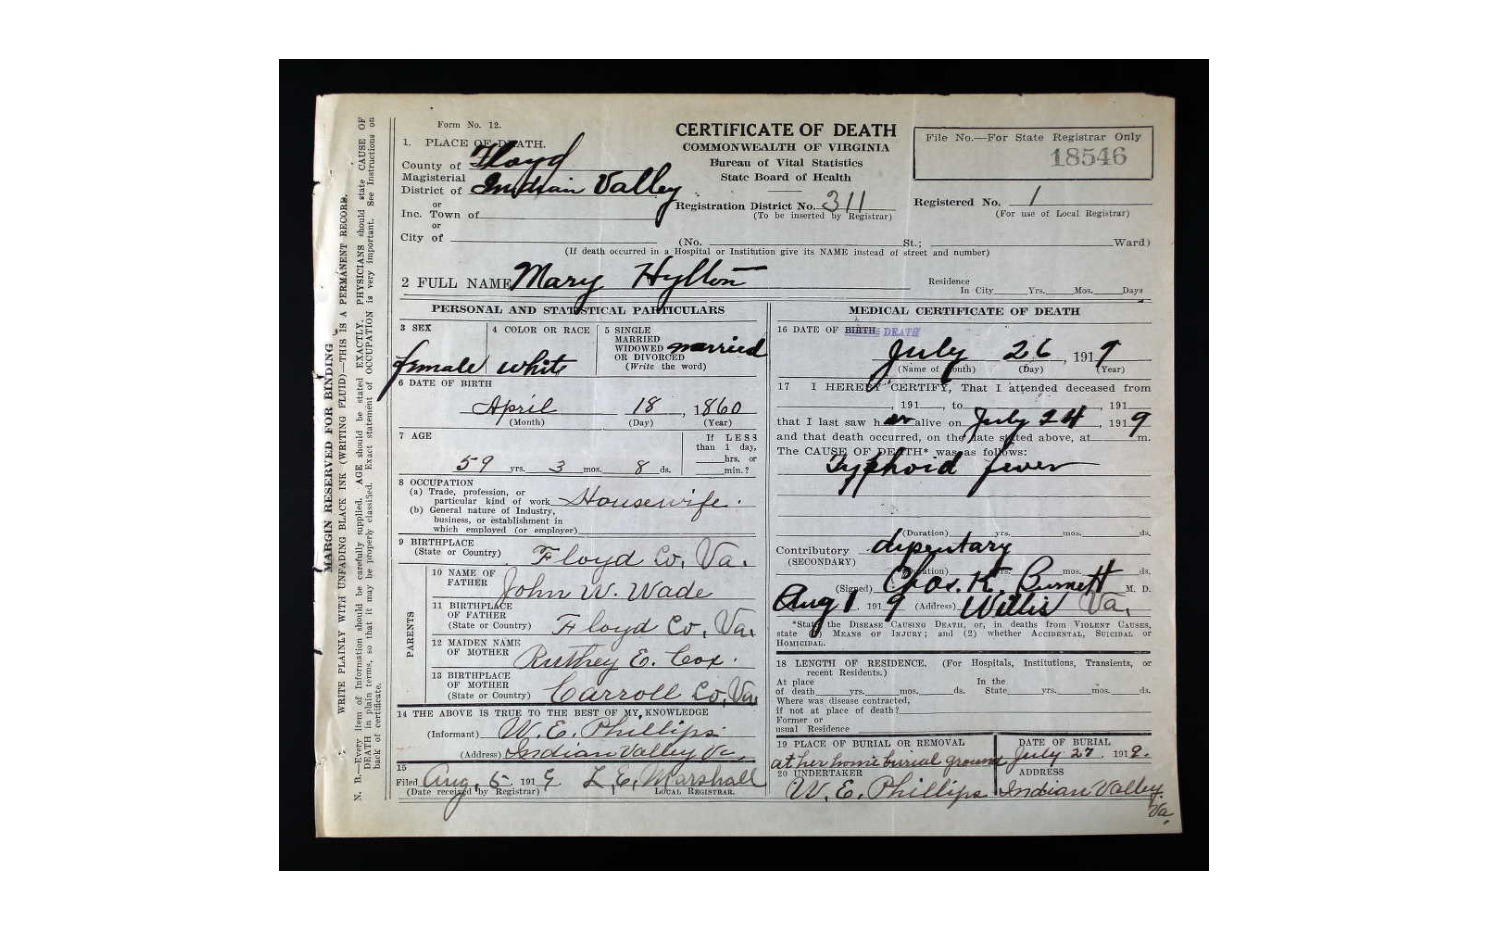 Form No. 12.
CERTIFICATE OF DEATH
COMMONWEALTH OF VIRGINIA
Bureau of Vital Statistics
State Board of Health
File No.—For State Registrar Only
18546
1. PLACE OF DEATH.
County of Floyd
Magisterial
District of Indian Valley
or
Inc. Town of
or
City of
Registration District No. 311
(To be inserted by Registrar)
Registered No. 1
(For use of Local Registrar)
(No. St.; Ward)
(If death occurred in a Hospital or Institution give its NAME instead of street and number)
2 FULL NAME Mary Hylton
Residence
In City Yrs. Mos. Days
PERSONAL AND STATISTICAL PARTICULARS
3 SEX
female
4 COLOR OR RACE
white
5 SINGLE
MARRIED
WIDOWED married
OR DIVORCED
(Write the word)
6 DATE OF BIRTH
April 18, 1860
(Month) (Day) (Year)
7 AGE
59 yrs. 3 mos. 8 ds.
If LESS
than 1 day,
hrs. or
min.?
8 OCCUPATION
(a) Trade, profession, or
particular kind of work Housewife.
(b) General nature of Industry,
business, or establishment in
which employed (or employer)
9 BIRTHPLACE
(State or Country) Floyd Co. Va.
PARENTS
10 NAME OF
FATHER John W. Wade
11 BIRTHPLACE
OF FATHER
(State or Country) Floyd Co, Va.
12 MAIDEN NAME
OF MOTHER Ruthey E. Cox.
13 BIRTHPLACE
OF MOTHER
(State or Country) Carroll Co, Va.
14 THE ABOVE IS TRUE TO THE BEST OF MY KNOWLEDGE
(Informant) W. E. Phillips
(Address) Indian Valley Va,
15
Filed Aug, 5, 1919 L. E. Marshall
(Date received by Registrar) LOCAL REGISTRAR.
MEDICAL CERTIFICATE OF DEATH
16 DATE OF BIRTH DEATH
July 26, 1919
(Name of Month) (Day) (Year)
17 I HEREBY CERTIFY, That I attended deceased from
, 191 , to , 191
that I last saw her alive on July 24, 1919
and that death occurred, on the date stated above, at m.
The CAUSE OF DEATH* was as follows:
Typhoid fever
(Duration) yrs. mos. ds.
Contributory
(SECONDARY)
(Duration) mos. ds.
(Signed) Chas. K. Burnett M. D.
Aug 1 1919 (Address) Willis Va.
*State the DISEASE CAUSING DEATH, or, in deaths from VIOLENT CAUSES,
state (1) MEANS OF INJURY; and (2) whether ACCIDENTAL, SUICIDAL or
HOMICIDAL.
18 LENGTH OF RESIDENCE. (For Hospitals, Institutions, Transients, or
recent Residents.)
At place In the
of death yrs. mos. ds. State yrs. mos. ds.
Where was disease contracted,
if not at place of death?
Former or
usual Residence
19 PLACE OF BURIAL OR REMOVAL
at her home burial ground
DATE OF BURIAL
July 27 1919.
20 UNDERTAKER
W. E. Phillips
ADDRESS
Indian Valley.
Va.
MARGIN RESERVED FOR BINDING
WRITE PLAINLY WITH UNFADING BLACK INK (WRITING FLUID)—THIS IS A PERMANENT RECORD.
N. B.—Every item of Information should be carefully supplied. AGE should be stated EXACTLY. PHYSICIANS should state CAUSE OF
DEATH in plain terms, so that it may be properly classified. Exact statement of OCCUPATION is very important. See Instructions on
back of certificate.